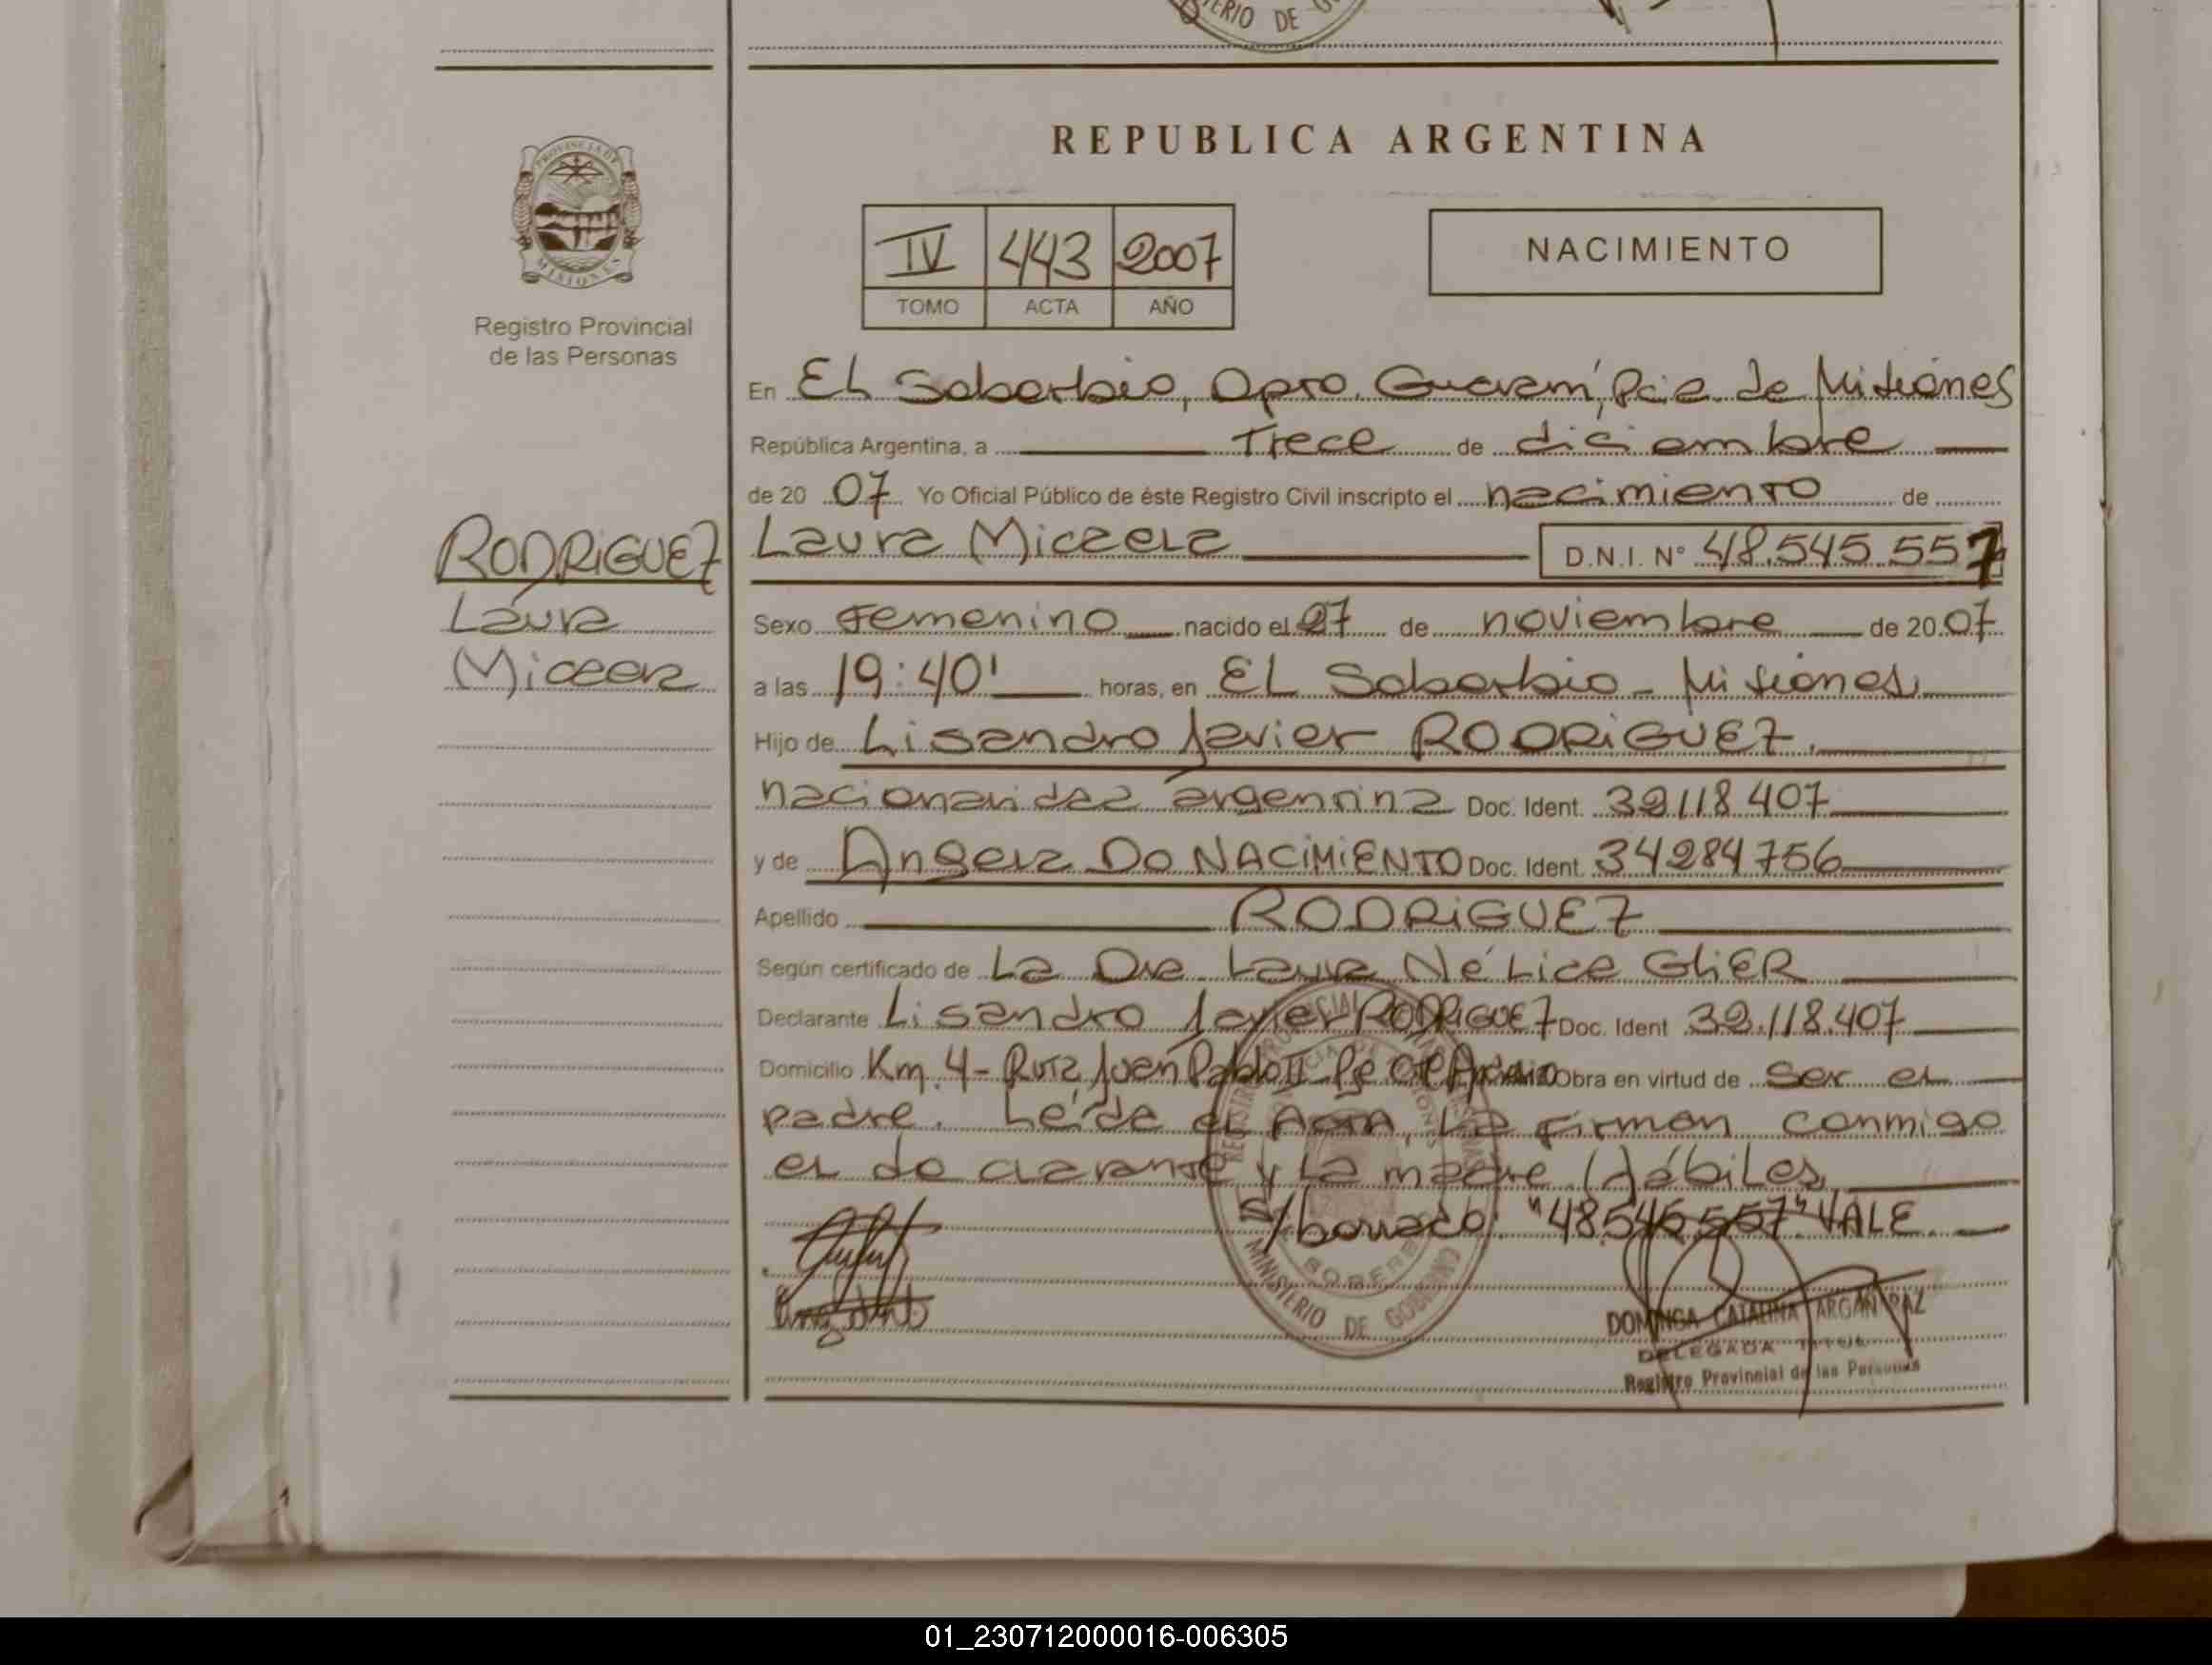 MINISTERIO DE GO
REPUBLICA ARGENTINA
PROVINCIA DE
MISIONES
Registro Provincial
de las Personas
IV 443 2007
TOMO ACTA AÑO
NACIMIENTO
En EL Soberbio, Dpto. Guaraní, Pcia de Misiones
República Argentina, a Trece de diciembre
de 20 07 Yo Oficial Público de éste Registro Civil inscripto el nacimiento de
RODRIGUEZ
Laura
Micaela
Laura Micaela D.N.I. N° 48.545.557
Sexo Femenino nacido el 27 de noviembre de 20 07
a las 19:40' horas, en EL Soberbio - Misiones
Hijo de Lisandro Javier RODRIGUEZ
nacionalidad argentina Doc. Ident. 39118407
y de Angela DO NACIMIENTO Doc. Ident. 34284756
Apellido RODRIGUEZ
Según certificado de La Dra. Laura Nélice GLIER
Declarante Lisandro Javier RODRIGUEZ Doc. Ident 39.118.407
Domicilio Km. 4 - Ruta Juan Pablo II Obra en virtud de ser el
padre. Leída el Acta, La Firman conmigo
el declarante y La madre (hábiles)
s/borrado: "48.545.557" VALE.
MINISTERIO DE GOBIERNO
DOMINGA CATALINA
DELEGADA
Registro Provincial de las Personas
01_230712000016-006305